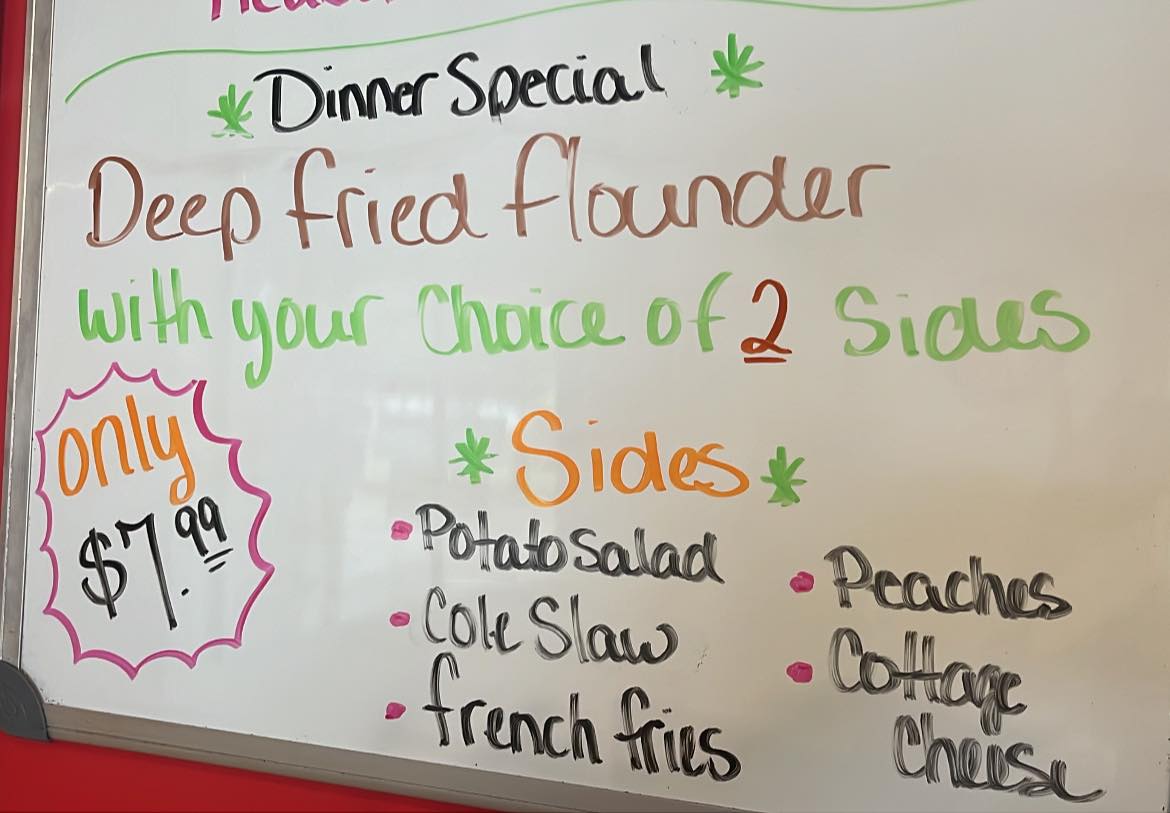 Dinner Special
Deep fried flounder
with your Choice of 2 Sides
only
$7.99
Sides
• Potato Salad
• Cole Slaw
• french fries
• Peaches
• Cottage
Cheese